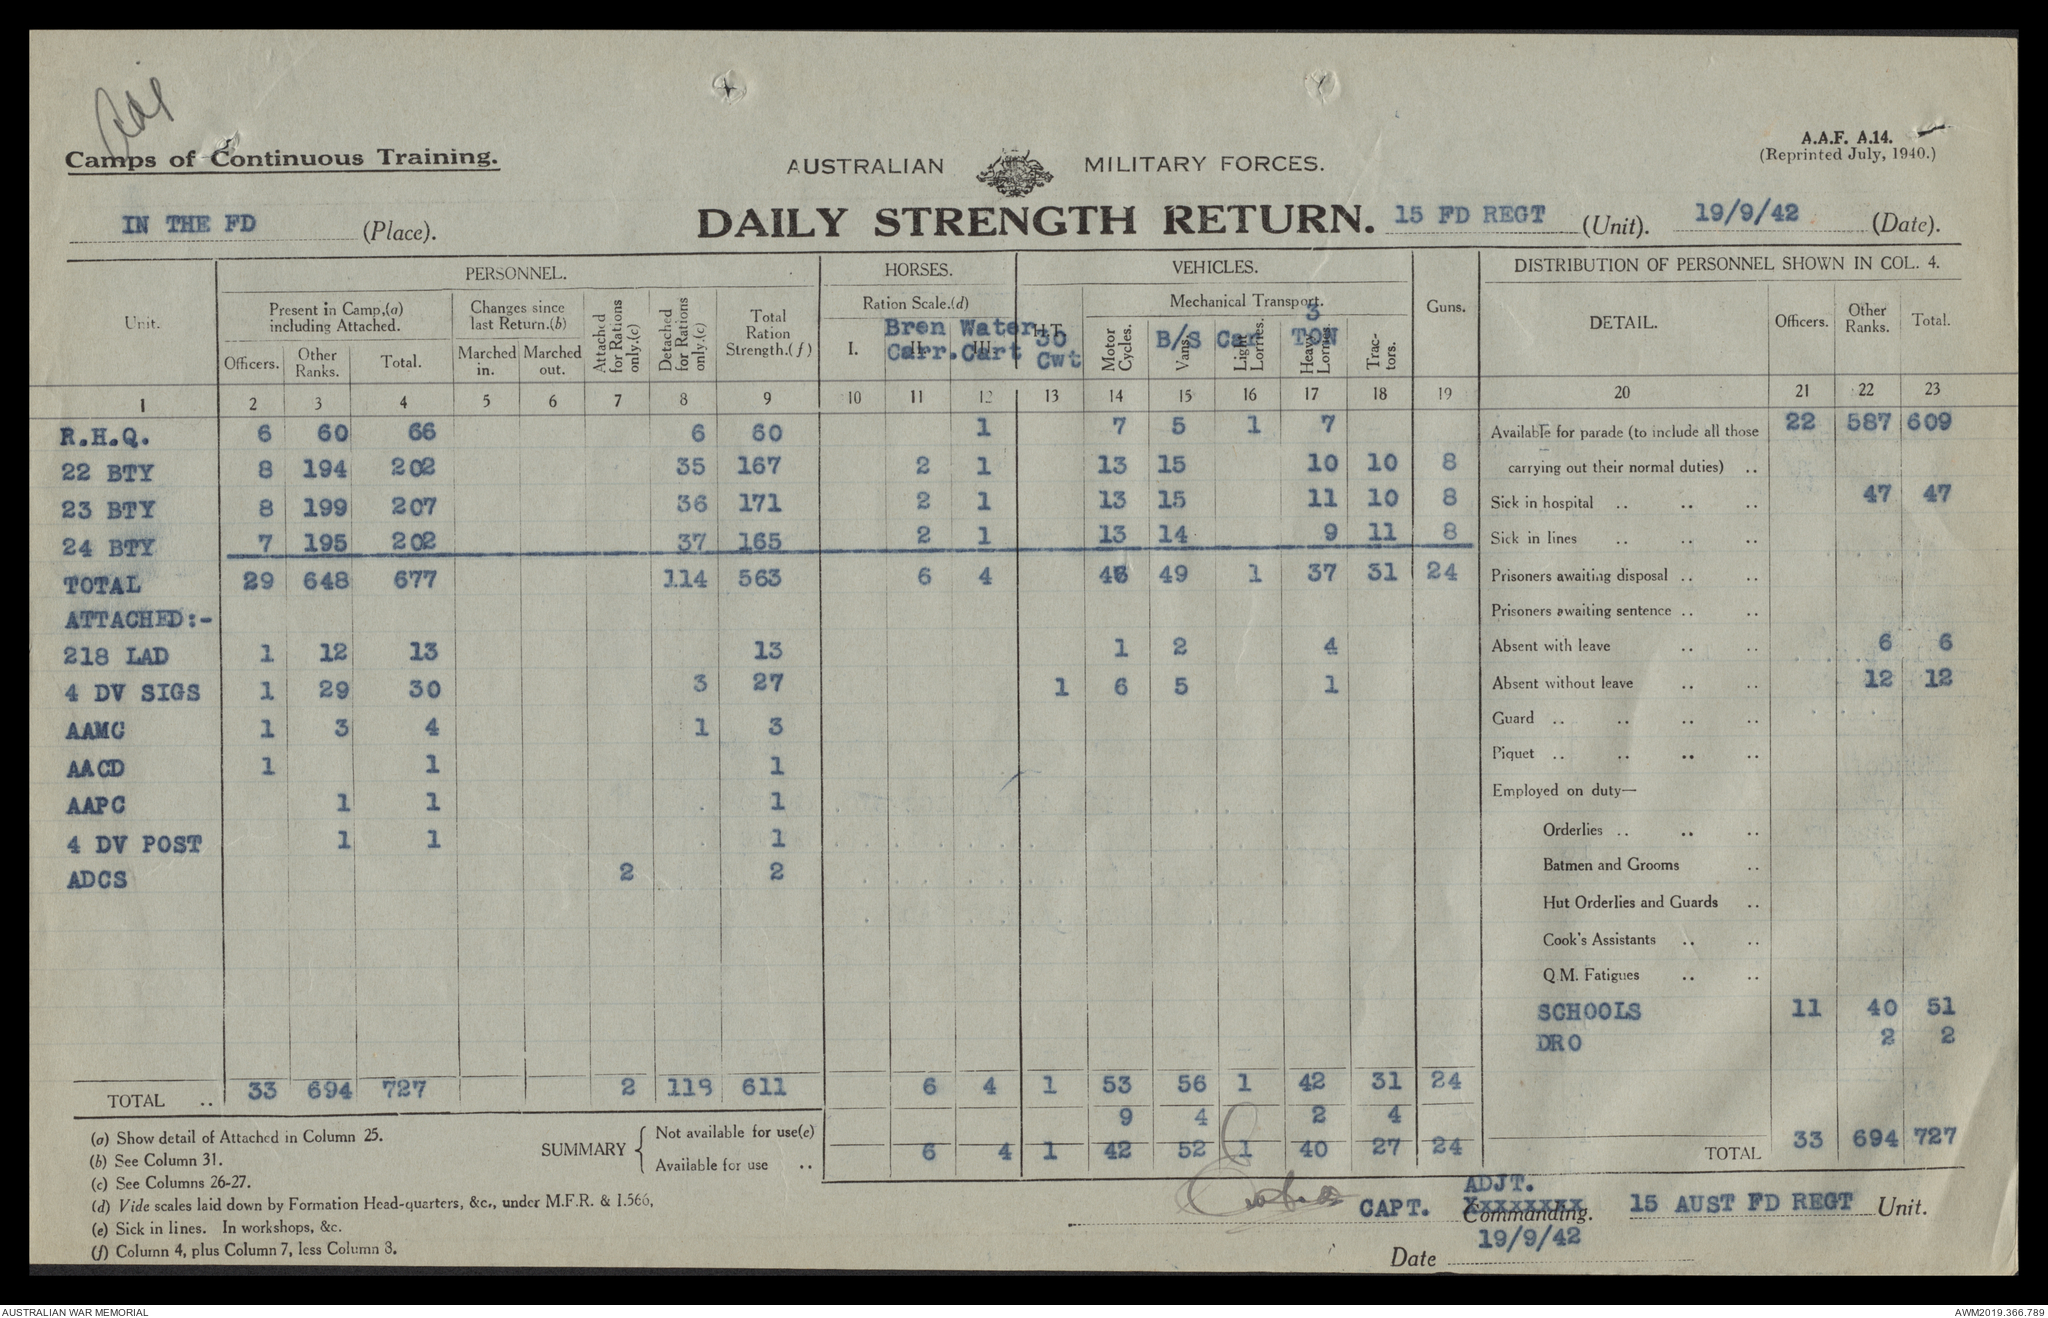 Camps of Continuous Training.
AUSTRALIAN MILITARY FORCES.
A.A.F. A.14.
(Reprinted July, 1940.)
IN THE FD (Place).
DAILY STRENGTH RETURN. 15 FD REGT (Unit). 19/9/42 (Date).
PERSONNEL. HORSES. VEHICLES. DISTRIBUTION OF PERSONNEL SHOWN IN COL. 4.
Unit. Present in Camp,(a) including Attached. Changes since last Return.(b) Attached for Rations only.(c) Detached for Rations only.(c) Total Ration Strength.(f) Ration Scale.(d) H.T. Mechanical Transport. Guns. DETAIL. Officers. Other Ranks. Total.
Officers. Other Ranks. Total. Marched in. Marched out. I. II. III. Motor Cycles. Vans. Light Lorries. Heavy Lorries. Trac-tors.
Bren Carr. Water Cart 30 Cwt B/S Car 3 TON
1 2 3 4 5 6 7 8 9 10 11 12 13 14 15 16 17 18 19 20 21 22 23
R.H.Q. 6 60 66 6 60 1 7 5 1 7 Available for parade (to include all those 22 587 609
22 BTY 8 194 202 35 167 2 1 13 15 10 10 8 carrying out their normal duties) ..
23 BTY 8 199 207 36 171 2 1 13 15 11 10 8 Sick in hospital .. .. .. 47 47
24 BTY 7 195 202 37 165 2 1 13 14 9 11 8 Sick in lines .. .. ..
TOTAL 29 648 677 114 563 6 4 46 49 1 37 31 24 Prisoners awaiting disposal .. ..
ATTACHED:- Prisoners awaiting sentence .. ..
218 LAD 1 12 13 13 1 2 4 Absent with leave .. .. 6 6
4 DV SIGS 1 29 30 3 27 1 6 5 1 Absent without leave .. .. 12 12
AAMC 1 3 4 1 3 Guard .. .. .. ..
AACD 1 1 1 Piquet .. .. .. ..
AAPC 1 1 1 Employed on duty—
4 DV POST 1 1 1 Orderlies .. .. ..
ADCS 2 2 Batmen and Grooms ..
Hut Orderlies and Guards ..
Cook's Assistants .. ..
Q.M. Fatigues .. ..
SCHOOLS 11 40 51
DRO 2 2
TOTAL .. 33 694 727 2 118 611 6 4 1 53 56 1 42 31 24
SUMMARY { Not available for use(e) 9 4 2 4
Available for use .. 6 4 1 42 52 1 40 27 24 TOTAL 33 694 727
(a) Show detail of Attached in Column 25.
(b) See Column 31.
(c) See Columns 26-27.
(d) Vide scales laid down by Formation Head-quarters, &c., under M.F.R. & I.566,
(e) Sick in lines. In workshops, &c.
(f) Column 4, plus Column 7, less Column 8.
CAPT. ADJT. xxxxxxxx Commanding. 15 AUST FD REGT Unit.
Date 19/9/42
AUSTRALIAN WAR MEMORIAL AWM2019.366.789